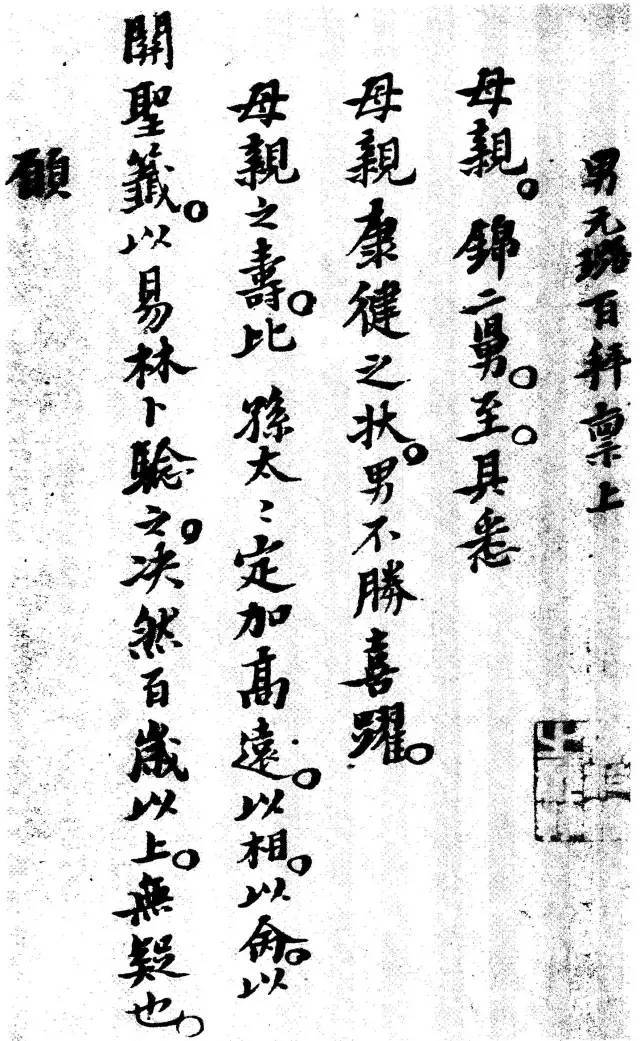 男元璐百拜禀上
母親。錦二舅。至。具悉
母親康健之狀。男不勝喜躍。
母親之壽。比孫太〻定加高遠。以相。以命。以
關聖籤。以易林卜驗之。决然百歲以上。無疑也。
願